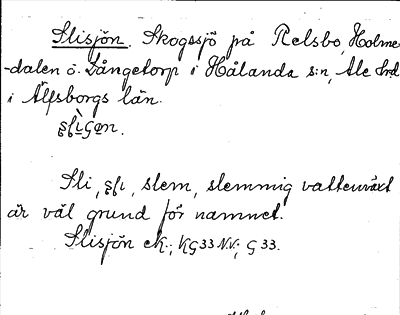 Slisjön. Skogssjö på Relsbo, Holme-
-dalen ö. Långetorp i Hålanda s:n, Ale hrd
i Älfsborgs län.
Sli, slem, slemmig vattenväxt
är väl grund för namnet.
Slisjön ek.; KG33 N.V.; G 33.